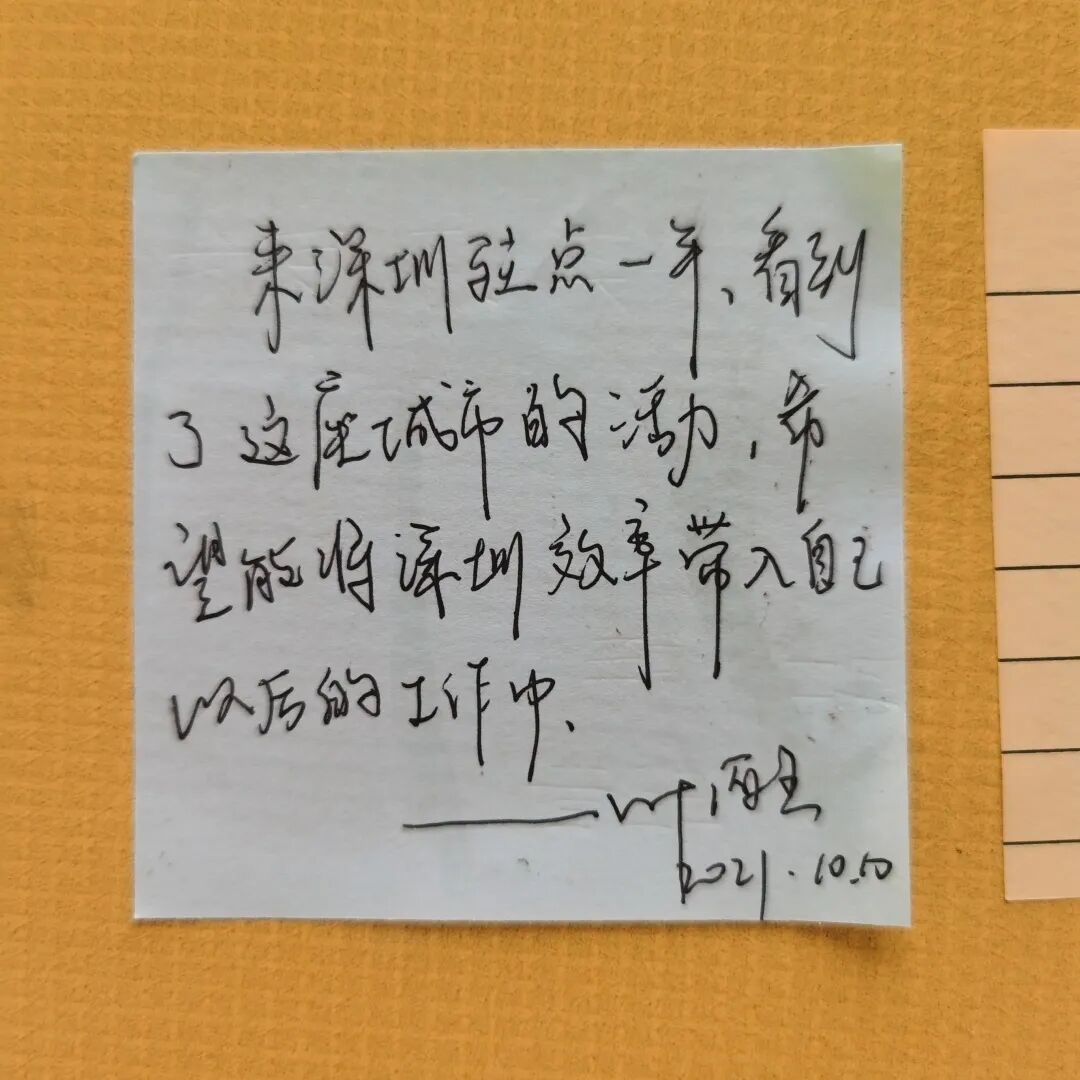 来深圳驻点一年、看到
了这座城市的活力,希
望能将深圳效率带入自己
以后的工作中、
——叶
2021.10.10